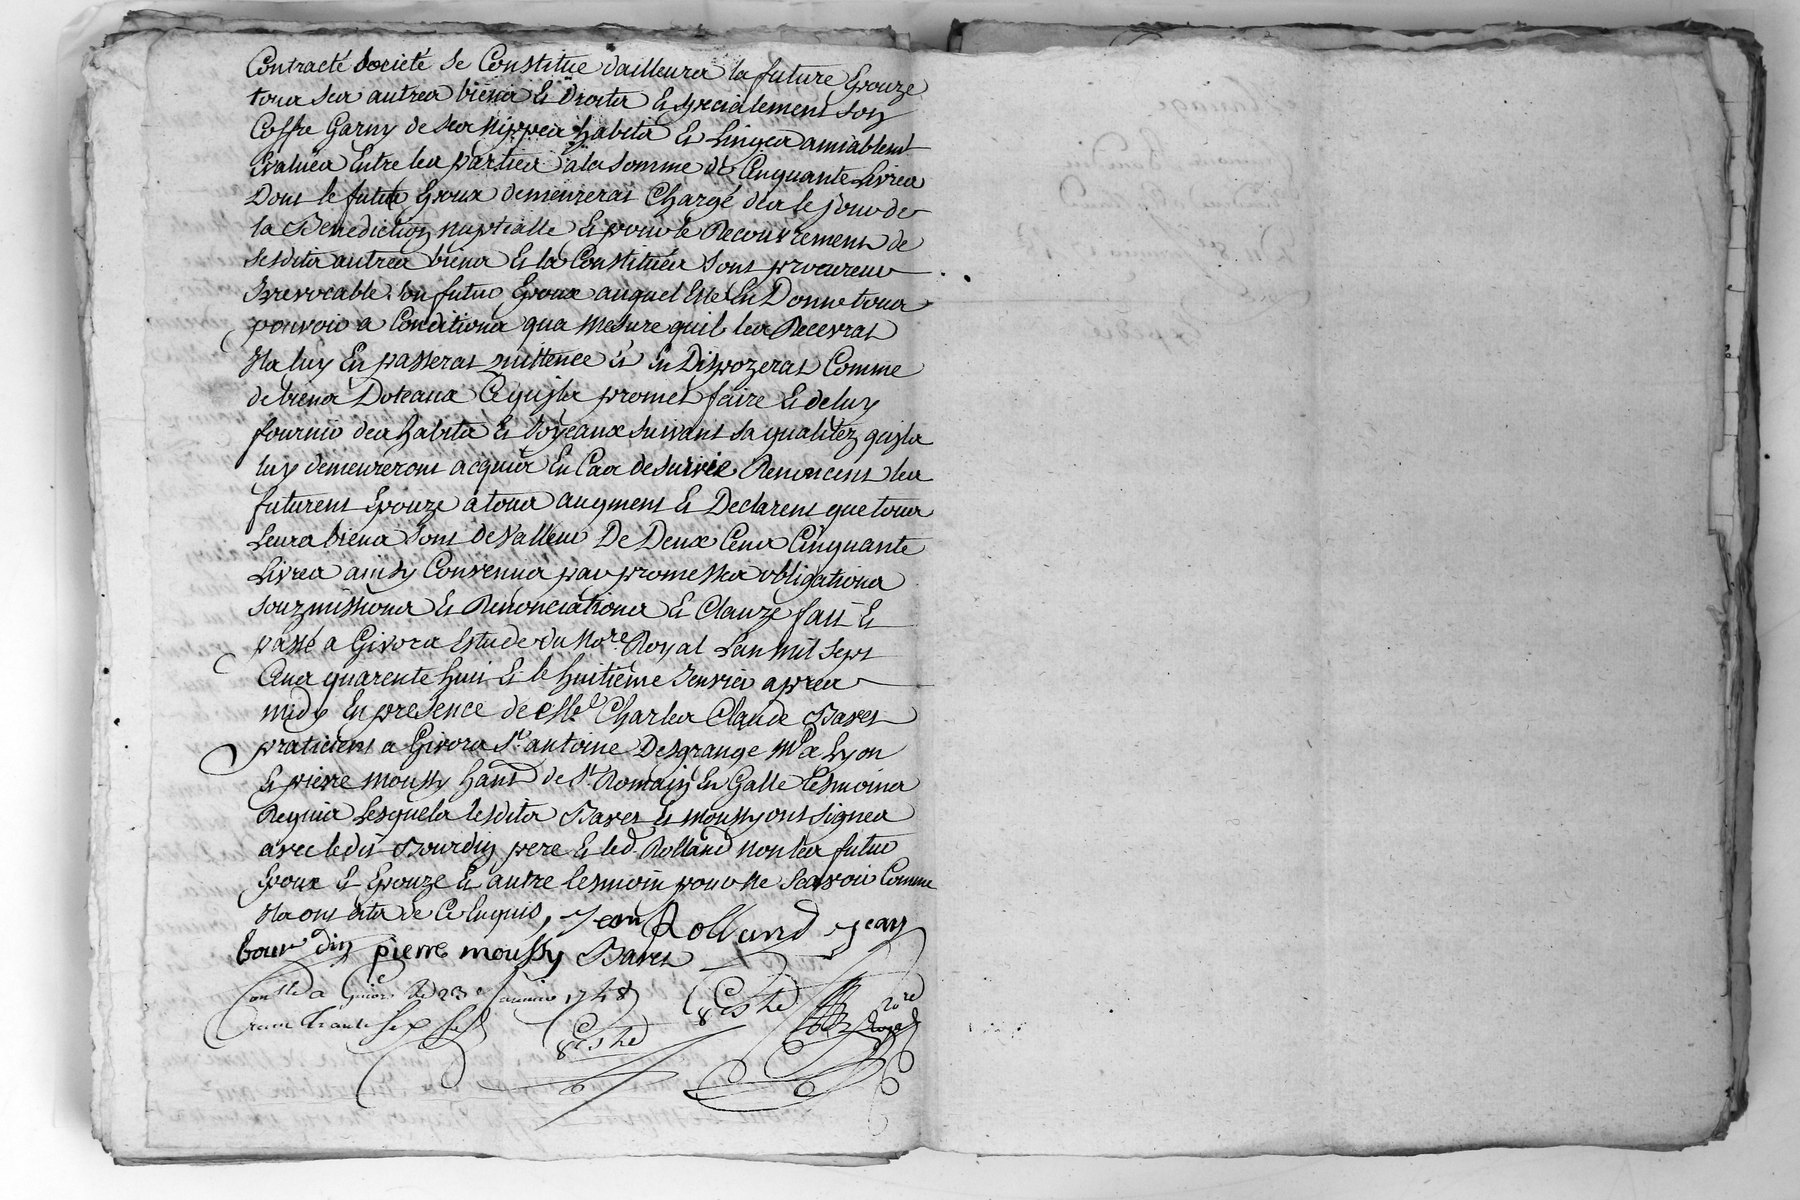 Contracté Societé Se Constitue dailleurs la future Epouze
tous ses autres biens Et Droits Et specialement son
Coffre Garny de ses nippes habits Et Linges amiablemt
Evalüea Entre les parties a la somme de Cinquante Livres
Dont le futur Epoux demeureras Chargé des le jour de
la Benediction nuptialle Et pour le Recouvrement de
sesdits autres biens Et la Constituée Sont procureur
Irrevocable son futur Epoux auquel Elle En Donne tous
pouvoir a Conditions qua mesure quil les Recevras
Ila luy En passeras quittence Et En Dispozeras Comme
de biens Doteaux Ce quila promet faire Et de luy
fournir des habits Et Joyeaux suivant sa qualitez quila
luy demeureront acquis En Cas de survie Renoncent les
futurent Epouze a tous augment Et Declarent que tous
Leurs biens sont de valleur De Deux Cens Cinquante
Livres ainsy Convenus par promesses obligations
souzmissions Et Renonciations Et Clauze fait Et
passé a Givors Estude du Nore Royal Lan mil sept
Cens quarente huit Et le huitieme Jenvier apres
midy En presence de Me Charles Claude Baret
praticient a Givors Sr antoine Desgrange Md a Lyon
Et pierre moussy habt de St Romain En Galle tesmoins
Requis Lesquels lesdits Baret Et moussy ont signes
avec ledit Bourdin pere Et led Rolland non les futur
Epoux Et Epouze Et autre tesmoin pour ne Scavoir Comme
Ila ont dits de Ce Enquis, Jean Rolland jean
bourdin pierre moussy Baret
Conllé a Givors le 23e janvier 1748
Nore Royal